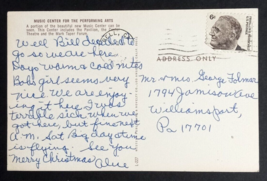 MUSIC CENTER FOR THE PERFORMING ARTS
A portion of the beautiful new Music Center can be
seen. This Center includes the Pavilion, the
Theatre and the Mark Taper Forum.
Well Bill wanted to
go so we are here
Days warm & cool nites
Bob's girl seems very
nice. We are enjoy-
ing it here I was
terrible sick when we
got here, but fine now
A. M. Sat Big day time
is flying. See you
Merry Christmas
Alice
6¢
ADDRESS ONLY
Mr & Mrs. George Folmar
1794 Jamison Ave
Williamsport,
Pa 17701